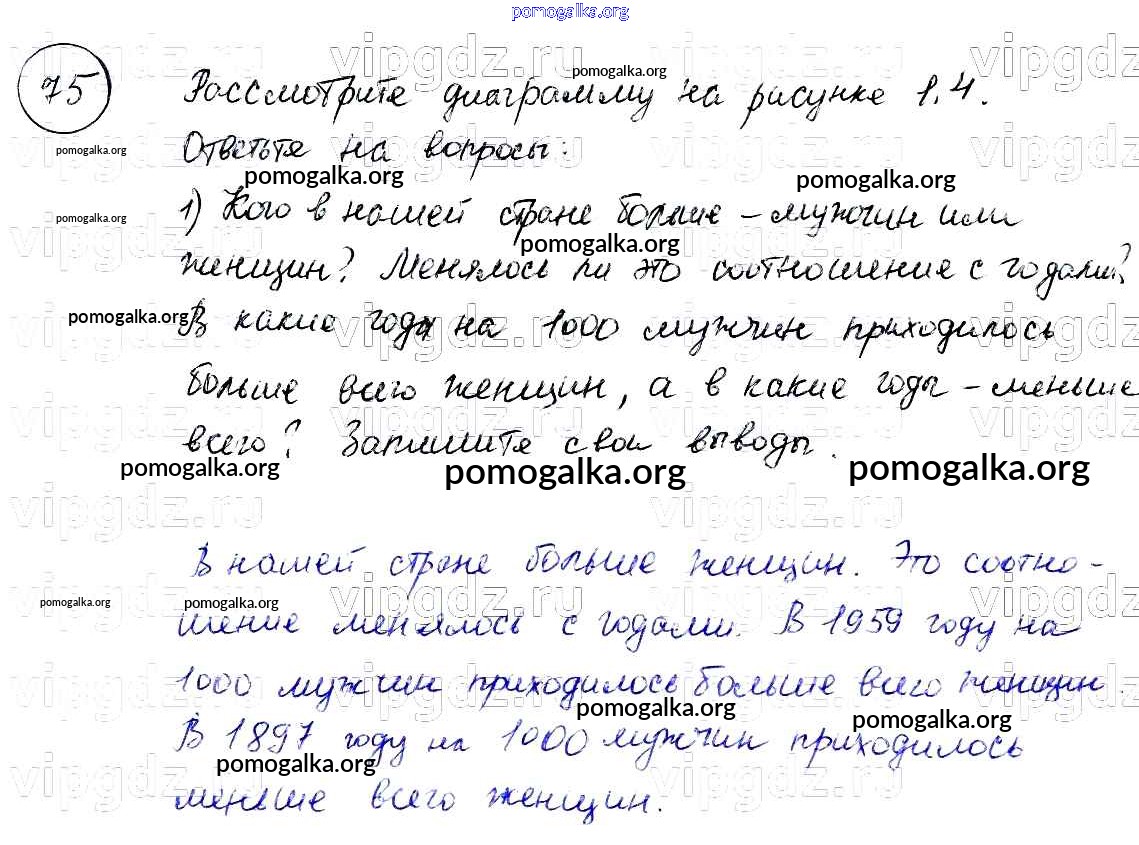 pomogalka.org
75 Рассмотрите диаграмму на рисунке 1.4.
pomogalka.org
Ответьте на вопросы:
pomogalka.org
pomogalka.org pomogalka.org
1) Кого в нашей стране больше – мужчин или
pomogalka.org
pomogalka.org
женщин? Менялось ли это соотношение с годами?
pomogalka.org
В какие годы на 1000 мужчин приходилось
больше всего женщин, а в какие годы – меньше
всего? Запишите свои выводы.
pomogalka.org pomogalka.org pomogalka.org
В нашей стране больше женщин. Это соотно-
pomogalka.org pomogalka.org
шение менялось с годами. В 1959 году на
1000 мужчин приходилось больше всего женщин.
pomogalka.org pomogalka.org
В 1897 году на 1000 мужчин приходилось
pomogalka.org
меньше всего женщин.
vipgdz.ru